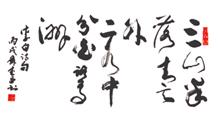 三山半
落青天
外
二水中
分白鹭
洲
李白诗句
丙戌